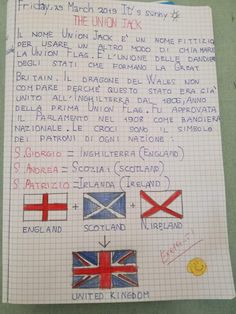 Friday, 15 March 2019 It's sunny
THE UNION JACK
IL NOME UNION JACK E' UN NOME FITTIZIO
PER USARE UN ALTRO MODO DI CHIAMARE
LA UNION FLAG. E L'UNIONE DELLE BANDIERE
DEGLI STATI CHE FORMANO LA GREAT
BRITAIN. IL DRAGONE DEL WALES NON
COMPARE PERCHÉ QUESTO STATO ERA GIA'
UNITO ALL'INGHILTERRA DAL 1606, ANNO
DELLA PRIMA UNION FLAG. FU APPROVATA
IL PARLAMENTO NEL 1908 COME BANDIERA
NAZIONALE. LE CROCI SONO IL SIMBOLO
DEI PATRONI DI OGNI NAZIONE:
S. GIORGIO = INGHILTERRA (ENGLAND)
S. ANDREA = SCOZIA (SCOTLAND)
S. PATRIZIO = IRLANDA (IRELAND)
ENGLAND SCOTLAND N. IRELAND
UNITED KINGDOM